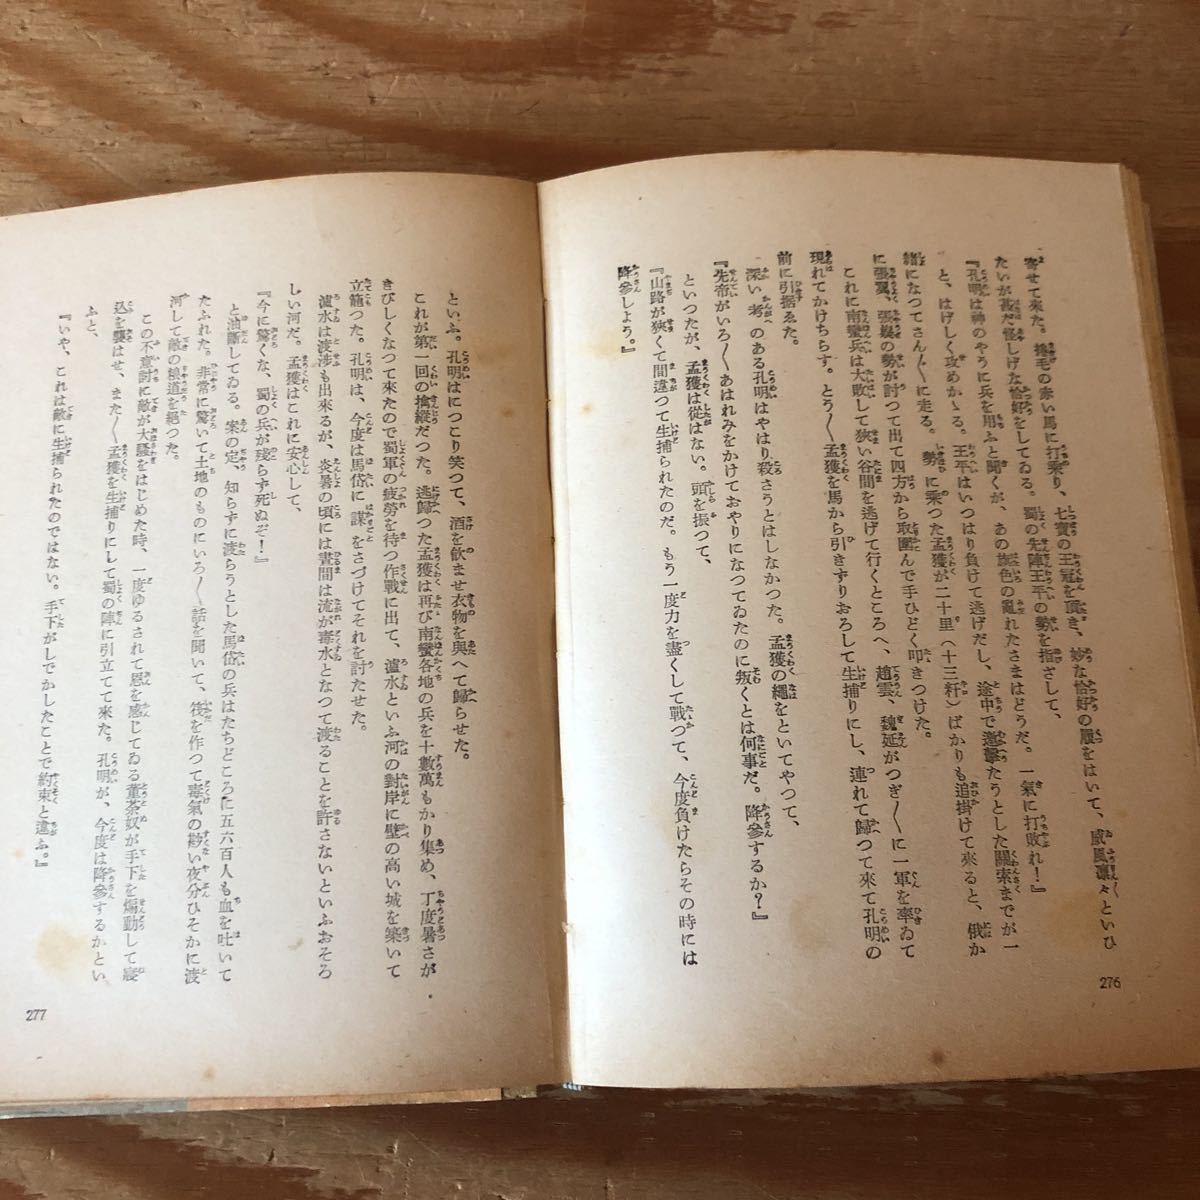 寄せて来た。捲毛の赤い馬に打乗り、七寶の王冠を頂き、妙な恰好の履をはいて、威風凛々といひ
たいが甚だ怪しげな恰好をしてゐる。蜀の先陣王平の勢を指ざして、
『孔明は神のやうに兵を用ふと聞くが、あの旗色の亂れたさまはどうだ。一氣に打敗れ!』
と、はげしく攻めかゝる。王平はいつはり負けて逃げだし、途中で邀擊たうとした關索までが一
緒になつてさん〴〵に走る。勢に乘つた孟獲が二十里(十三粁)ばかりも追掛けて來ると、俄か
に張嶷、張翼の勢が討つて出て四方から取圍んで手ひどく叩きつけた。
これに南蠻兵は大敗して狹い谷間を逃げて行くところへ、趙雲、魏延がつぎ〳〵に一軍を率ゐて
現れてかけちらす。とう〳〵孟獲を馬から引きずりおろして生捕りにし、連れて歸つて來て孔明の
前に引据ゑた。
深い考のある孔明はやはり殺さうとはしなかつた。孟獲の繩をといてやつて、
『先帝がいろ〳〵あはれみをかけておやりになつてゐたのに叛くとは何事だ。降參するか?』
といつたが、孟獲は從はない。頭を振つて、
『山路が狹くて間違つて生捕られたのだ。もう一度力を盡くして戰つて、今度負けたらその時には
降參しよう。』
276
といふ。孔明はにつこり笑つて、酒を飮ませ衣物を與へて歸らせた。
これが第一回の擒縱だつた。逃歸つた孟獲は再び南蠻各地の兵を十數萬もかり集め、丁度暑さが
きびしくなつて來たので蜀軍の疲勞を待つ作戰に出て、瀘水といふ河の對岸に壁の高い城を築いて
立籠つた。孔明は、今度は馬岱に謀をさづけてそれを討たせた。
瀘水は渡涉も出來るが、炎暑の頃には晝間は流が毒水となつて渡ることを許さないといふおそろ
しい河だ。孟獲はこれに安心して、
『今に驚くな、蜀の兵が殘らず死ぬぞ!』
と油斷してゐる。案の定、知らずに渡らうとした馬岱の兵はたちどころに五六百人も血を吐いて
たふれた。非常に驚いて土地のものにいろ〳〵話を聞いて、筏を作つて毒氣の尠い夜分ひそかに渡
河して敵の糧道を絕つた。
この不意討に敵が大騷をはじめた時、一度ゆるされて恩を感じてゐる董荼奴が手下を煽動して寢
込を襲はせ、また〳〵孟獲を生捕りにして蜀の陣に引立てて來た。孔明が、今度は降參するかとい
ふと、
『いや、これは敵に生捕られたのではない。手下がしでかしたことで約束と違ふ。』
277